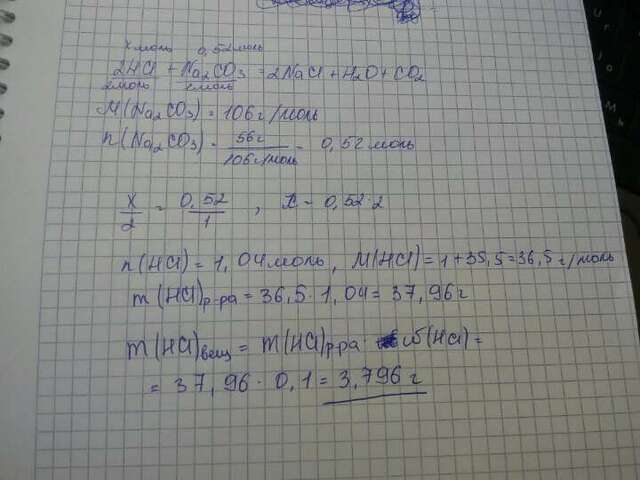 x моль 0,52 моль
2HCl + Na₂CO₃ = 2NaCl + H₂O + CO₂
2моль 1моль
M(Na₂CO₃) = 106 г/моль
n(Na₂CO₃) = 56г / 106г/моль = 0,52 моль
x/2 = 0,52/1 , x = 0,52·2
n(HCl) = 1,04 моль, M(HCl) = 1+35,5=36,5 г/моль
m(HCl)р-ра = 36,5·1,04 = 37,96 г
m(HCl)вещ = m(HCl)р-ра · ω(HCl) =
= 37,96 · 0,1 = 3,796 г